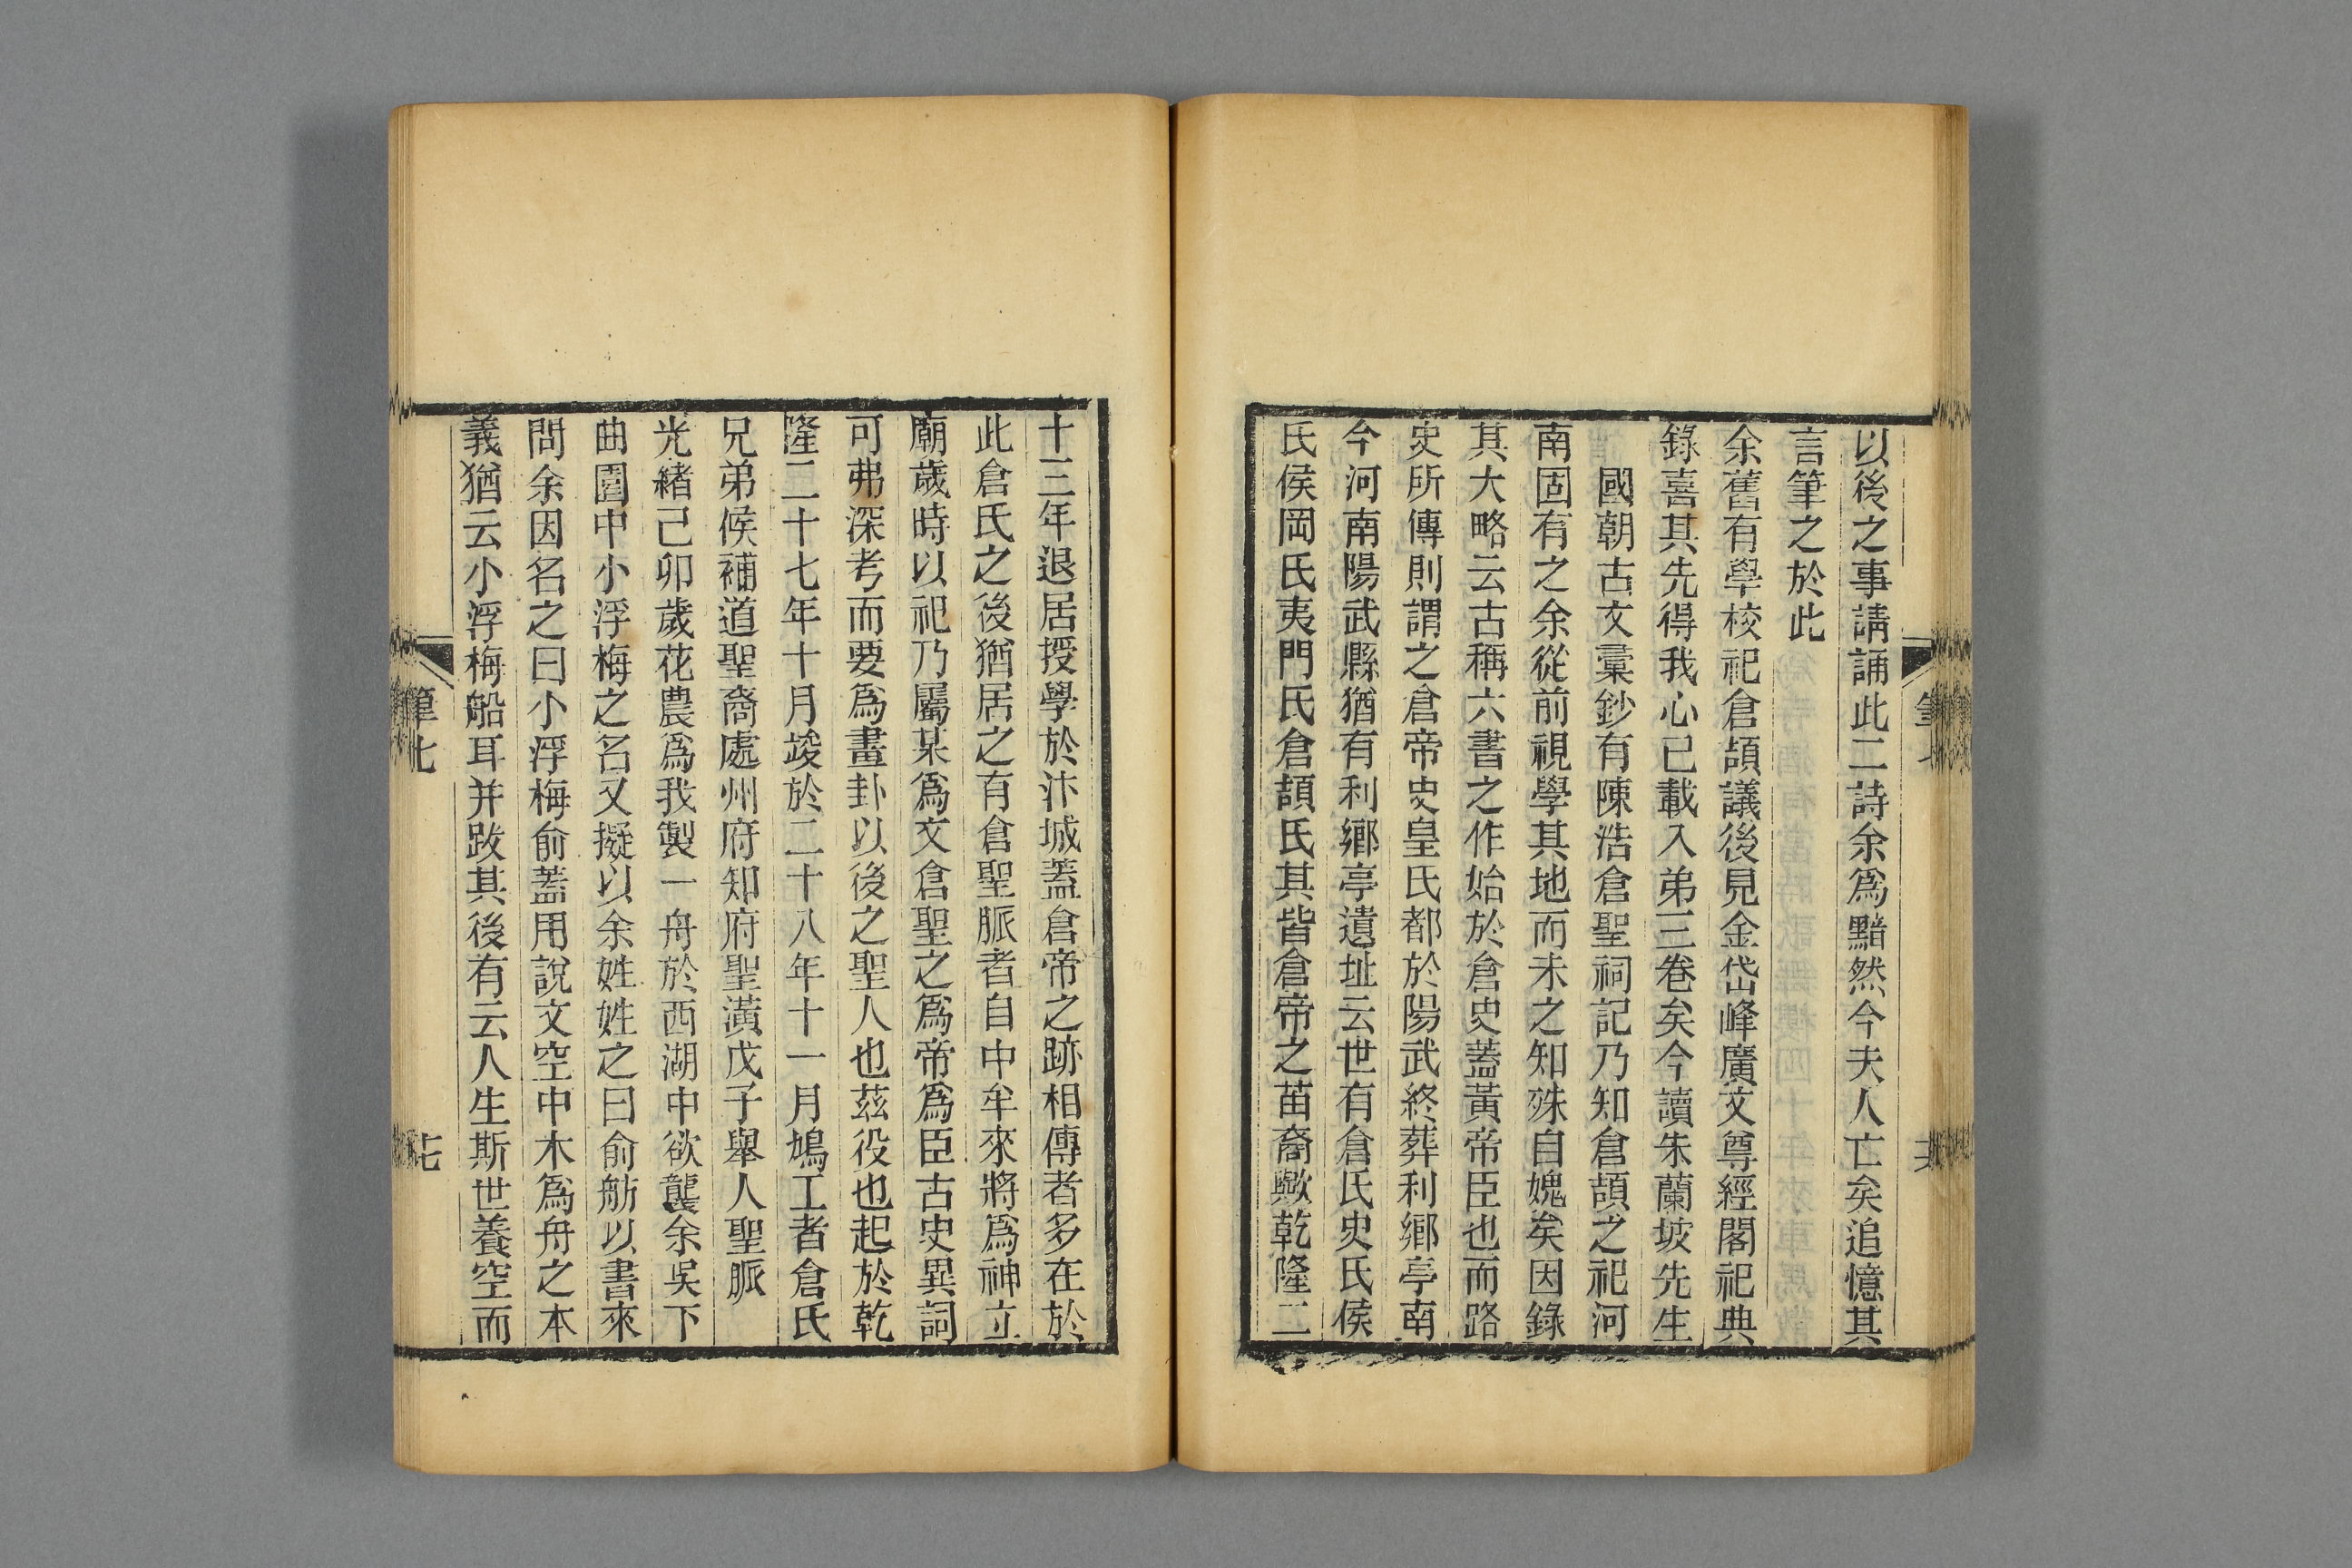 以後之事請誦此二詩余爲黯然今夫人亡矣追憶其
言筆之於此
余舊有學校祀倉頡議後見金岱峰廣文尊經閣祀典
錄喜其先得我心已載入弟三卷矣今讀朱蘭坡先生
國朝古文彙鈔有陳浩倉聖祠記乃知倉頡之祀河
南固有之余從前視學其地而未之知殊自媿矣因錄
其大略云古稱六書之作始於倉史蓋黃帝臣也而路
史所傳則謂之倉帝史皇氏都於陽武終葬利鄉亭南
今河南陽武縣猶有利鄉亭遺址云世有倉氏史氏侯
氏侯岡氏夷門氏倉頡氏其皆倉帝之苗裔歟乾隆二
十三年退居授學於汴城蓋倉帝之跡相傳者多在於
此倉氏之後猶居之有倉聖脈者自中牟來將爲神立
廟歲時以祀乃屬某爲文倉聖之爲帝爲臣古史異詞
可弗深考而要爲畫卦以後之聖人也茲役也起於乾
隆二十七年十月竣於二十八年十一月鳩工者倉氏
兄弟候補道聖裔處州府知府聖潢戊子舉人聖脈
光緒己卯歲花農爲我製一舟於西湖中欲襲余吳下
曲園中小浮梅之名又擬以余姓姓之曰俞舫以書來
問余因名之曰小浮梅俞蓋用說文空中木爲舟之本
義猶云小浮梅船耳并跋其後有云人生斯世養空而
筆七
七